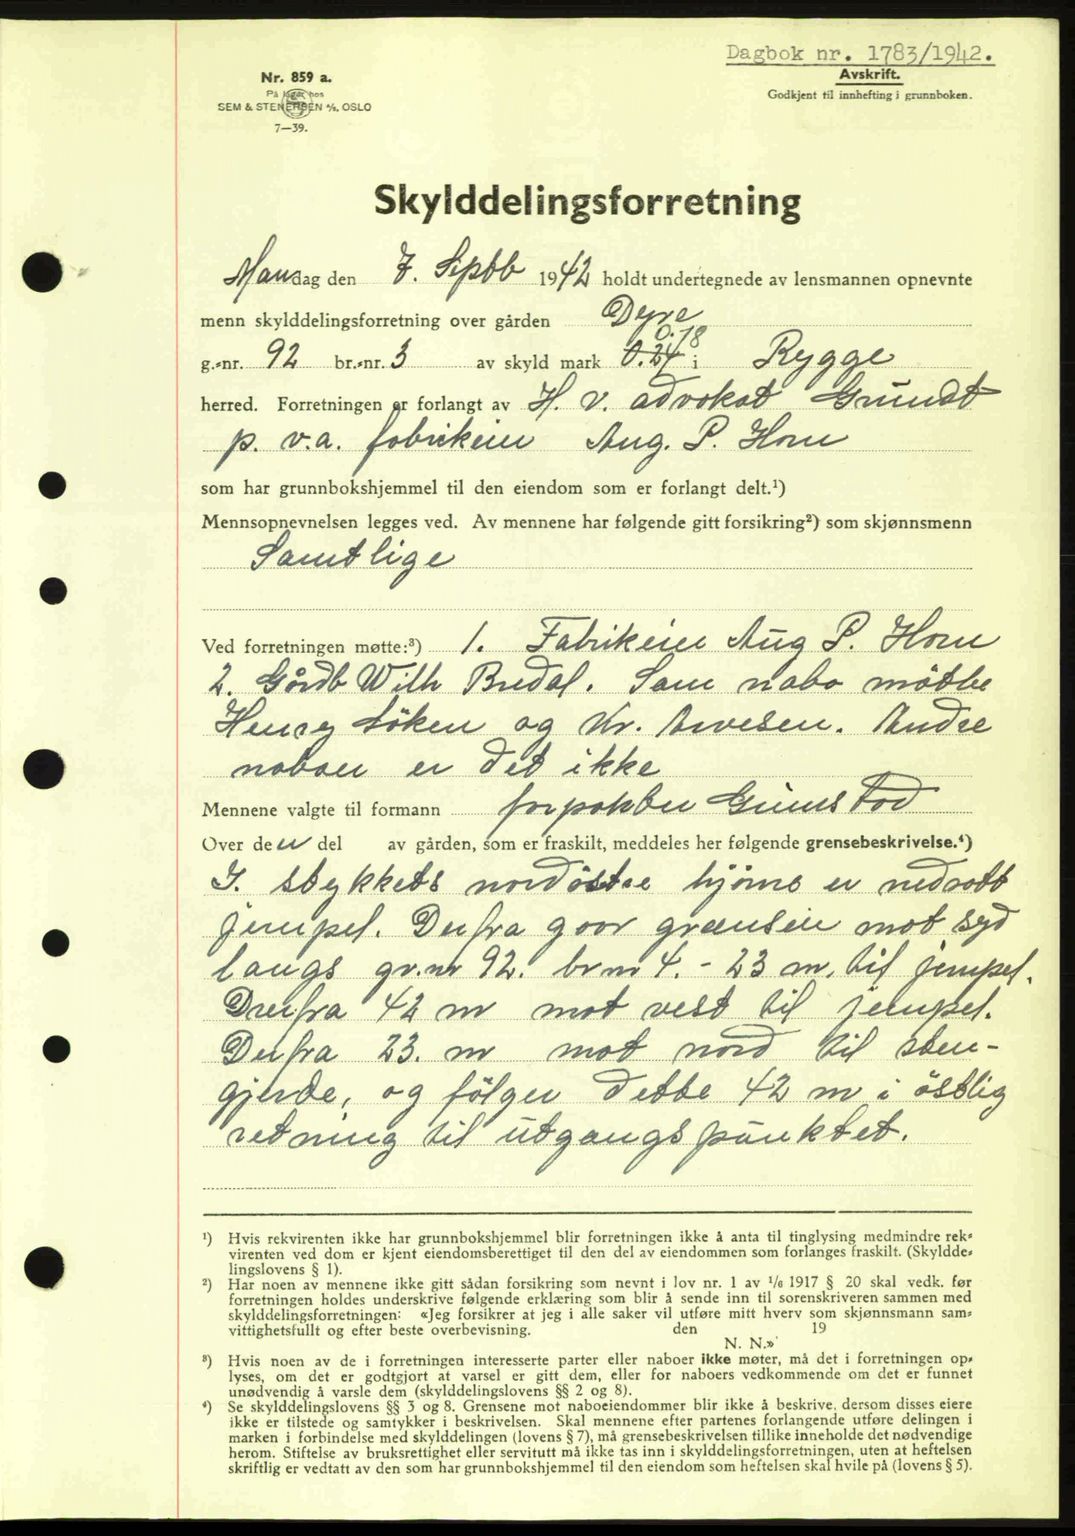 Dagbok nr. 1783/1942.
Avskrift.
Godkjent til innhefting i grunnboken.
Nr. 859 a.
På lager hos
SEM & STENERSEN A/S, OSLO
7—39.
Skylddelingsforretning
Mandag den 7. Septb 1942 holdt undertegnede av lensmannen opnevnte
menn skylddelingsforretning over gården Dyre
0.18
g.=nr. 92 br.=nr. 3 av skyld mark 0.24 i Rygge
herred. Forretningen er forlangt av H. r. advokat Grundt
p. v.a. fabrikeier Aug. P. Horn
som har grunnbokshjemmel til den eiendom som er forlangt delt.¹)
Mennsopnevnelsen legges ved. Av mennene har følgende gitt forsikring²) som skjønnsmenn
Samtlige
Ved forretningen møtte:³) 1. Fabrikeier Aug P. Horn
2. Gårdb Wilh Bredal. Som nabo mötte
Henry Löken og Kr. Arvesen. Andre
naboer er det ikke
Mennene valgte til formann forpakter Grimstad
Over den del av gården, som er fraskilt, meddeles her følgende grensebeskrivelse.⁴)
I stykkets nordöstre hjörne er nedsatt
jernpel. Derfra gaar grænsen mot syd
langs gr.nr 92. brnr 4. - 23 m. til jernpel.
Derfra 42 m mot vest til jernpel.
Derfra 23. m mot nord til sten-
gjerde, og fölger dette 42 m i östlig
retning til utgangspunktet.
¹) Hvis rekvirenten ikke har grunnbokshjemmel blir forretningen ikke å anta til tinglysing medmindre rek=
virenten ved dom er kjent eiendomsberettiget til den del av eiendommen som forlanges fraskilt. (Skyldde=
lingslovens § 1).
²) Har noen av mennene ikke gitt sådan forsikring som nevnt i lov nr. 1 av 1/6 1917 § 20 skal vedk. før
forretningen holdes underskrive følgende erklæring som blir å sende inn til sorenskriveren sammen med
skylddelingsforretningen: «Jeg forsikrer at jeg i alle saker vil utføre mitt hverv som skjønnsmann sam=
vittighetsfullt og efter beste overbevisning. den 19
N. N.»
³) Hvis noen av de i forretningen interesserte parter eller naboer ikke møter, må det i forretningen op=
lyses, om det er godtgjort at varsel er gitt dem, eller for naboers vedkommende om det er funnet
unødvendig å varsle dem (skylddelingslovens §§ 2 og 8).
⁴) Se skylddelingslovens §§ 3 og 8. Grensene mot naboeiendommer blir ikke å beskrive, dersom disses eiere
ikke er tilstede og samtykker i beskrivelsen. Skal mennene efter partenes forlangende utføre delingen i
marken i forbindelse med skylddelingen (lovens § 7), må grensebeskrivelsen tillike inneholde det nødvendige
herom. Stiftelse av bruksrettighet eller servitutt må ikke tas inn i skylddelingsforretningen, uten at heftelsen
skriftlig er vedtatt av den som har grunnbokshjemmel til den eiendom som heftelsen skal hvile på (lovens § 5).